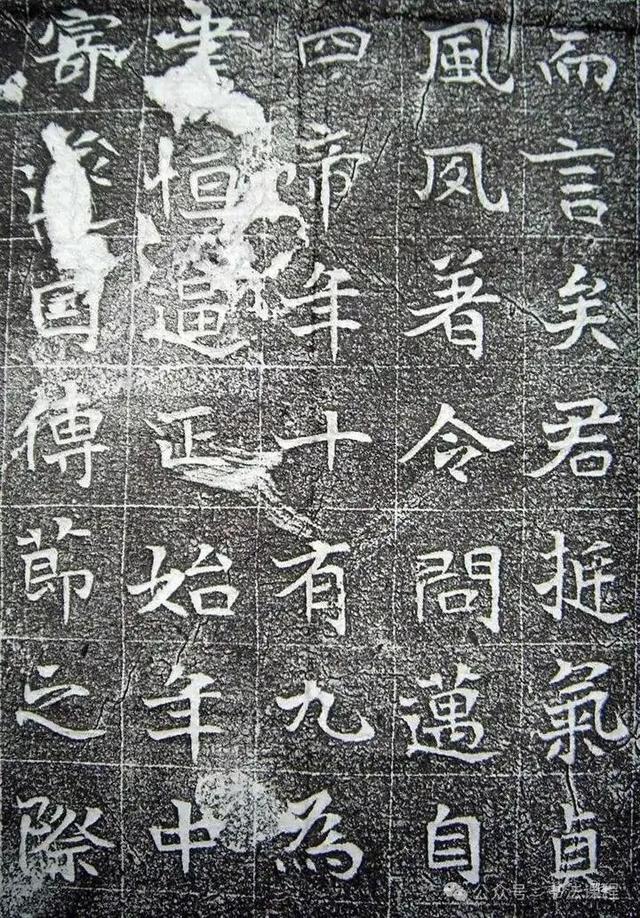 而言矣君挺氣貞
風夙著令問邁自
四帝年十有九為
恒逼正始年中
寄傅節之際
公众号：书法课程